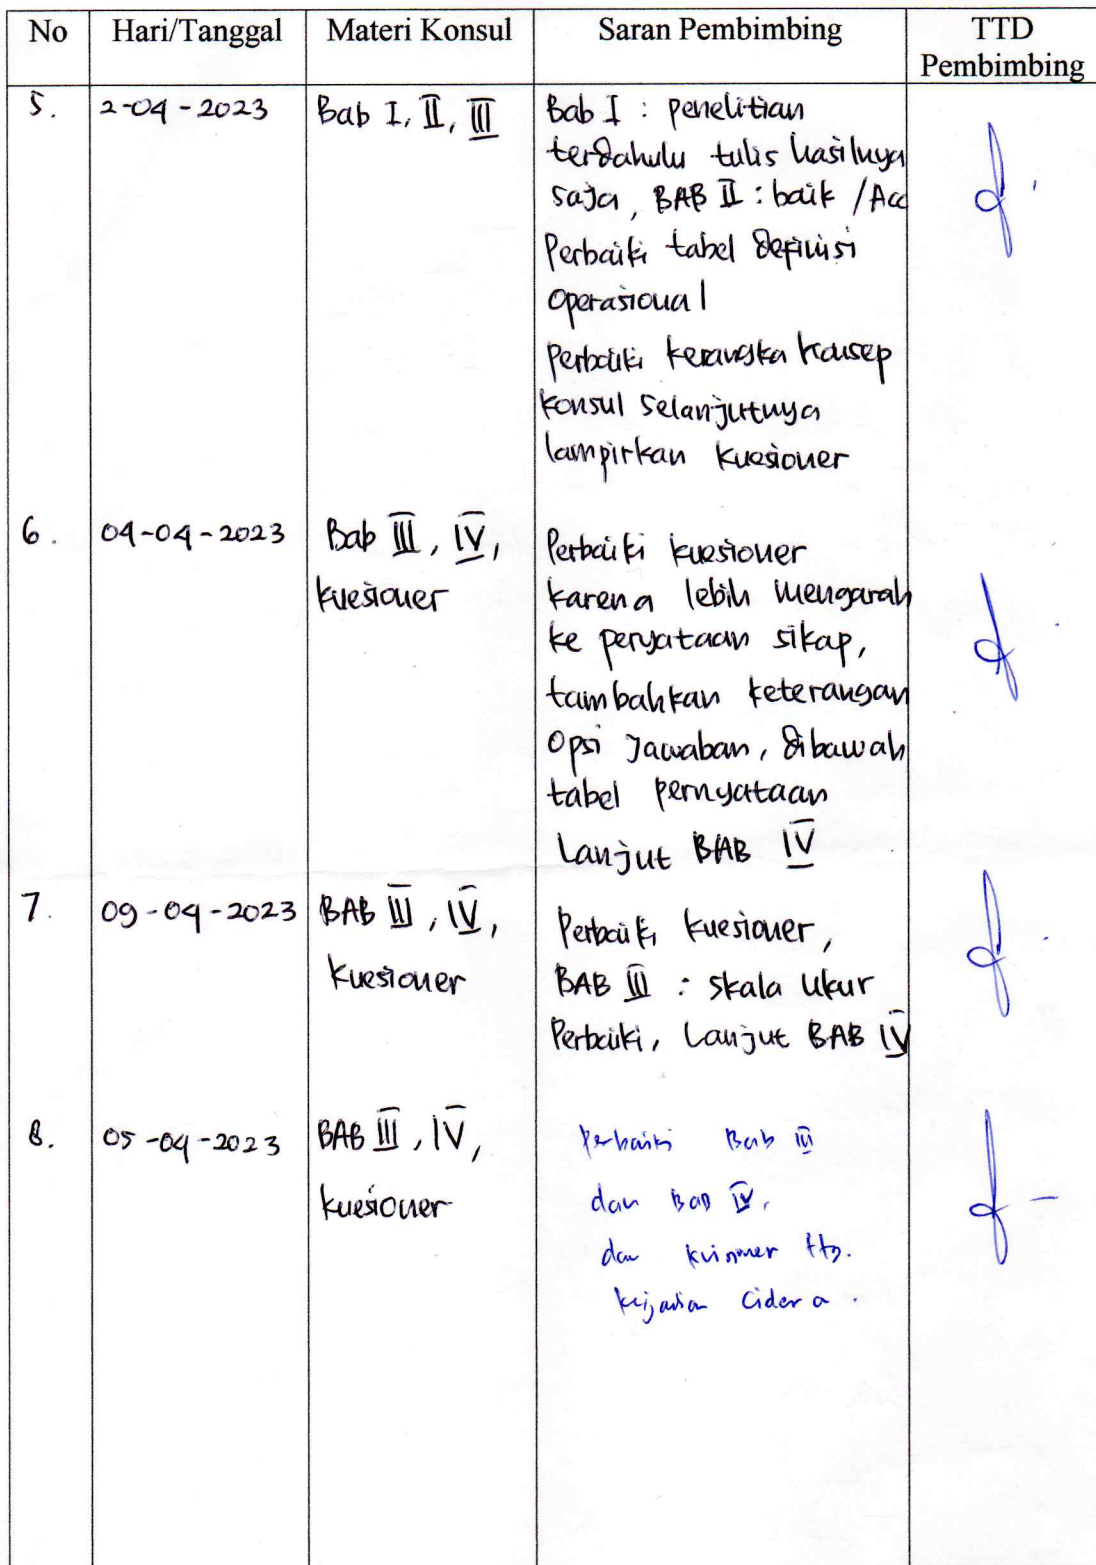 No Hari/Tanggal Materi Konsul Saran Pembimbing TTD
Pembimbing
5. 2-04-2023 Bab I, II, III Bab I : penelitian
terdahulu tulis hasilnya
saja, BAB II : baik /Acc
Perbaiki tabel definisi
operasional
Perbaiki kerangka konsep
konsul selanjutnya
lampirkan kuesioner
6. 04-04-2023 Bab III, IV, Perbaiki kuesioner
kuesioner karena lebih mengarah
ke peryataan sikap,
tambahkan keterangan
Opsi Jawaban, dibawah
tabel pernyataan
Lanjut BAB IV
7. 09-04-2023 BAB III, IV, Perbaiki kuesioner,
kuesioner BAB III : skala ukur
Perbaiki, Lanjut BAB IV
8. 05-04-2023 BAB III, IV, Perbaiki Bab III
kuesioner dan Bab IV,
dan ttg.
cidera.